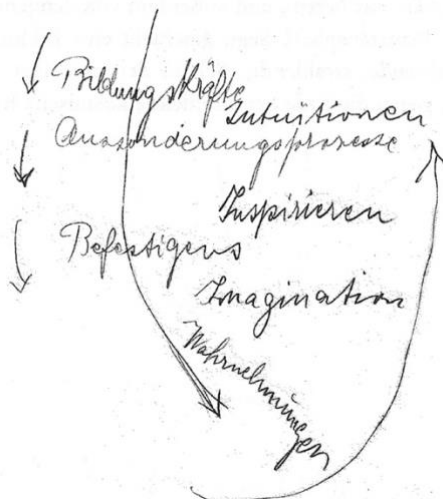 Bildungskräfte
Intuitionen
Aussonderungsprozesse
Inspirieren
Befestigens
Imagination
Wahrnehmungen